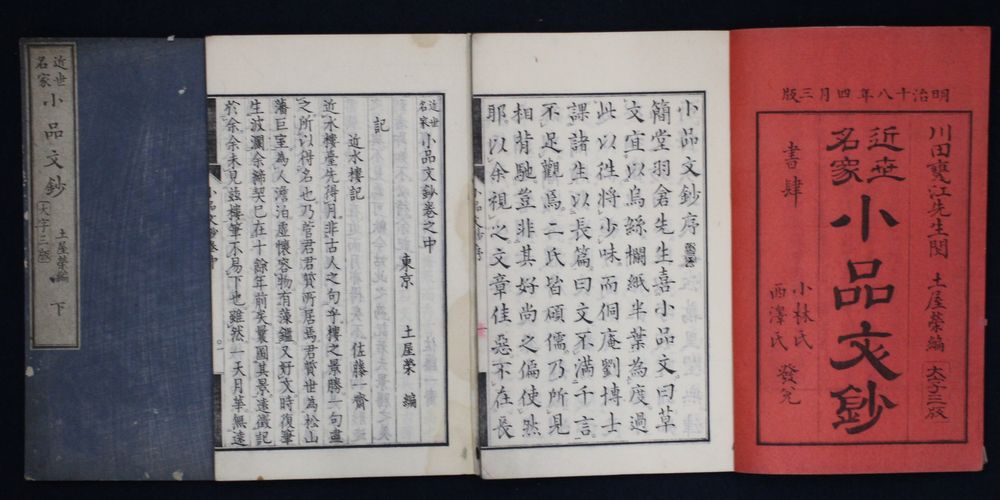 明治十八年四月三版
川田甕江先生閲 土屋榮編 大字三版
近世名家小品文鈔
書肆 小林氏 西澤氏 發兌
小品文鈔序
簡堂羽倉先生喜小品文曰草
文宜以烏絲欄紙半葉為度過
此以徃將少味而侗庵劉博士
課諸生以長篇曰文不滿千言
不足觀焉二氏皆碩儒乃所見
相背馳豈非其好尚之偏使然
耶以余視之文章佳惡不在長
小品文鈔序
近世名家小品文鈔卷之中
東京 土屋榮 編
記
近水樓記 佐藤一齋
近水樓臺先得月非古人之句乎樓之景勝一句盡
之所以得名也乃菅君君贊所居焉君贊世為松山
藩巨室為人澹泊虛懷容物有藻鑑又好文時復筆
生波瀾余締契已在十餘年前矣曩圖其景遠徵記
於余余未見玆樓筆不易下也雖然一天月華無遠
小品文鈔中
近世名家小品文鈔 大字三版 土屋榮編 下